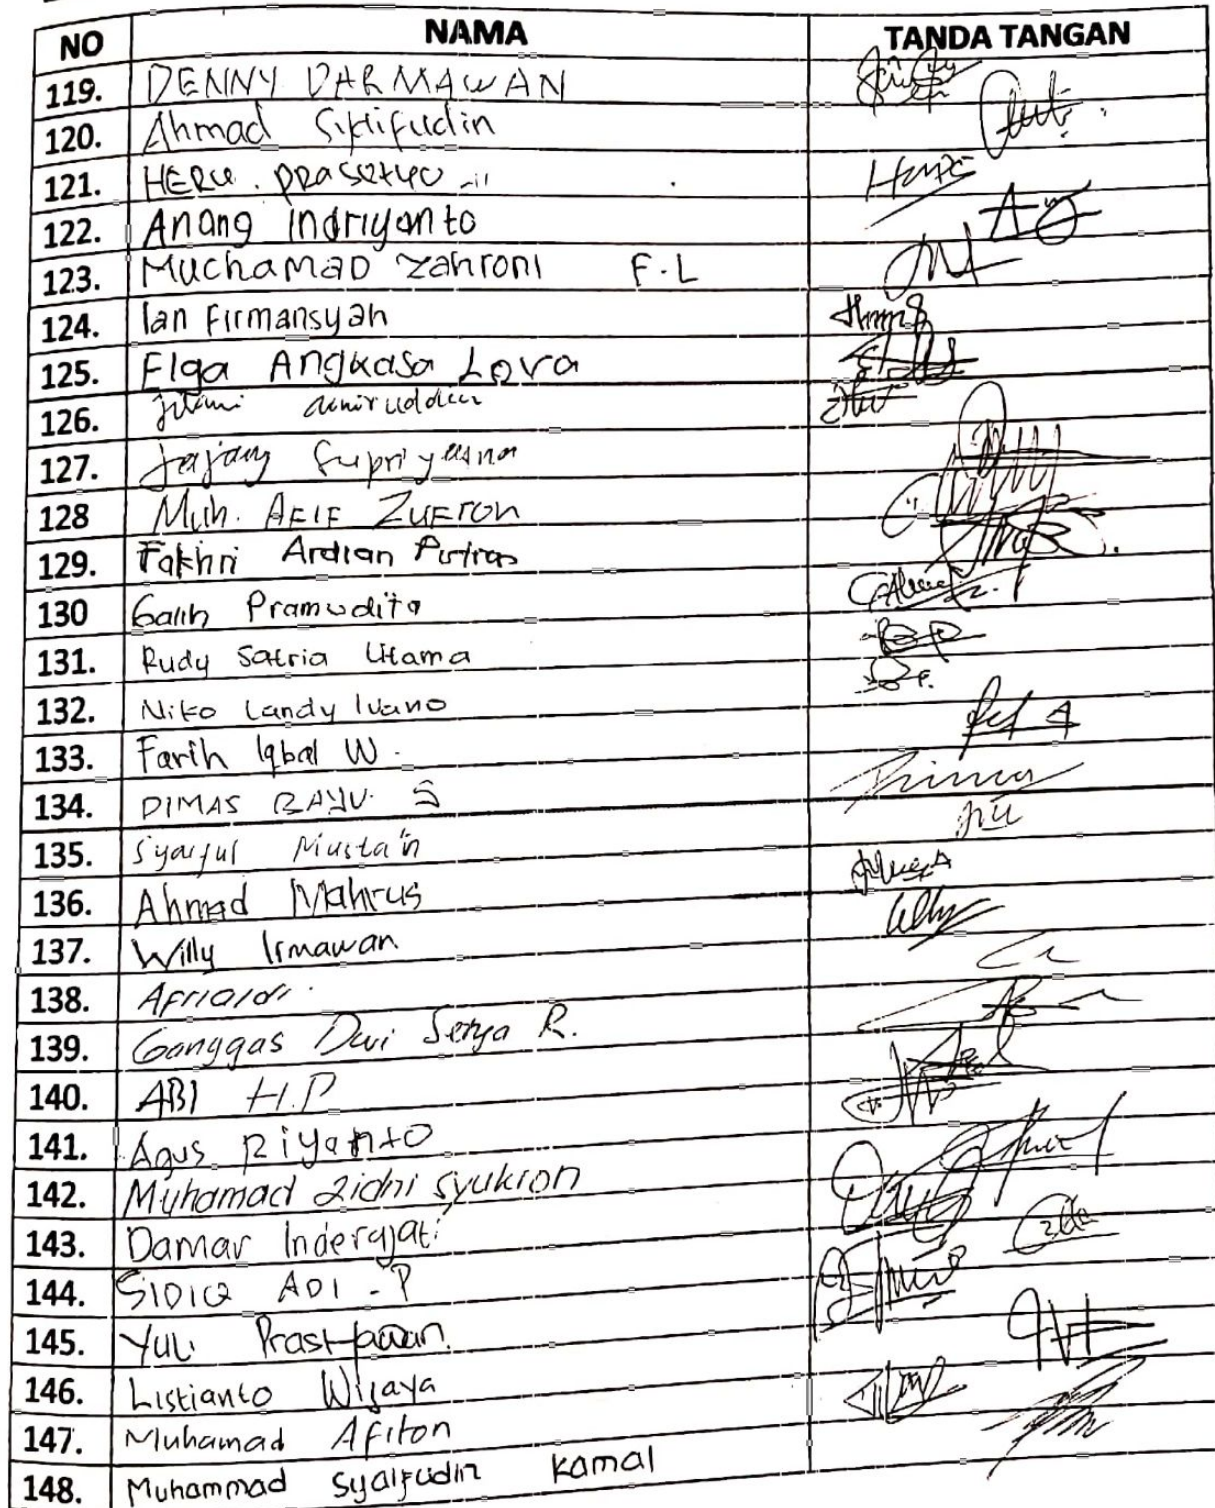 NO NAMA TANDA TANGAN
119. DENNY DARMAWAN
120. Ahmad
121. HERU. PRASETYO
122. Anang Indriyanto
123. Muchamad Zahroni F.L
124. Ian Firmansyah
125. Elga Angkasa Lova
126. amiruddin
127. Jajang Supriyatna
128 Muh. AFIF ZUFRON
129. Fakhri Ardian Putra
130 Galih Pramudita
131. Rudy Satria Utama
132. Niko Landy Ivano
133. Farih Iqbal W.
134. DIMAS BAYU. S
135. Syaiful Musta'in
136. Ahmad Mahrus
137. Willy Irmawan
138. Afrialdi.
139. Ganggas Dwi Setya R.
140. ABI H.P
141. Agus Riyanto
142. Muhamad Zidni Syukron
143. Damar Inderajati
144. SIDIQ ADI - P
145. Yuli
146. Listianto Wijaya
147. Muhamad Afiton
148. Muhammad Syaifudin Kamal